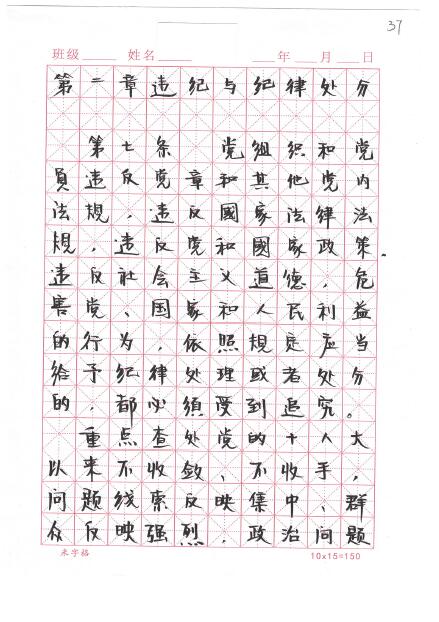 37
班级 姓名 年 月 日
第二章违纪与纪律处分
第七条 党组织和党
員违反党章和其他党内
法規，违反國家法律法
規，违反党和國家政策，
违反社会主义道德，危
害党、国家和人民利益
的行为，依照規定应当
给予纪律处理或者处分
的，都必須受到追究。
重点查处党的十八大
以来不收敛、不收手，
问题线索反映集中、群
众反映强烈，政治问题
米字格 10x15=150